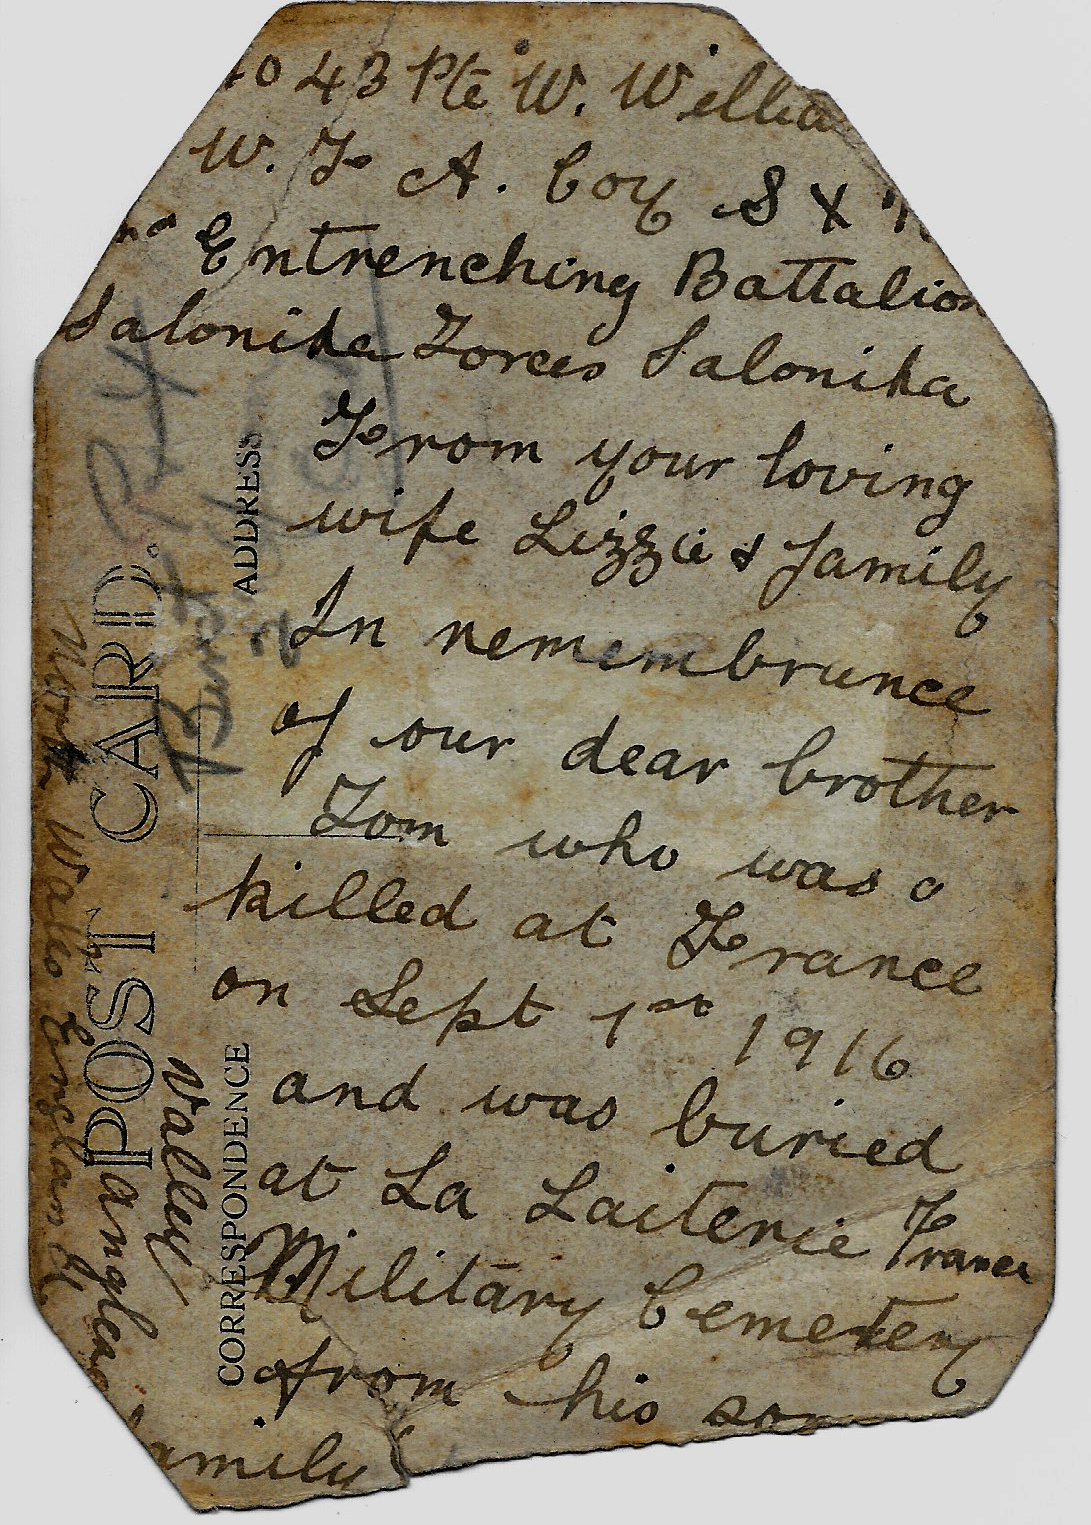 4043 Pte W. Willia
W. F A. Coy S X
Entrenching Battalion
Salonika Forces Salonika
From your loving
wife Lizzie & family
In remembrance
of our dear brother
Tom who was a
killed at France
on Sept 1st 1916
and was buried
at La Laiterie France
Military Cemetery
from his so
amily
Valley
North Wales England
POST CARD.
ADDRESS
CORRESPONDENCE